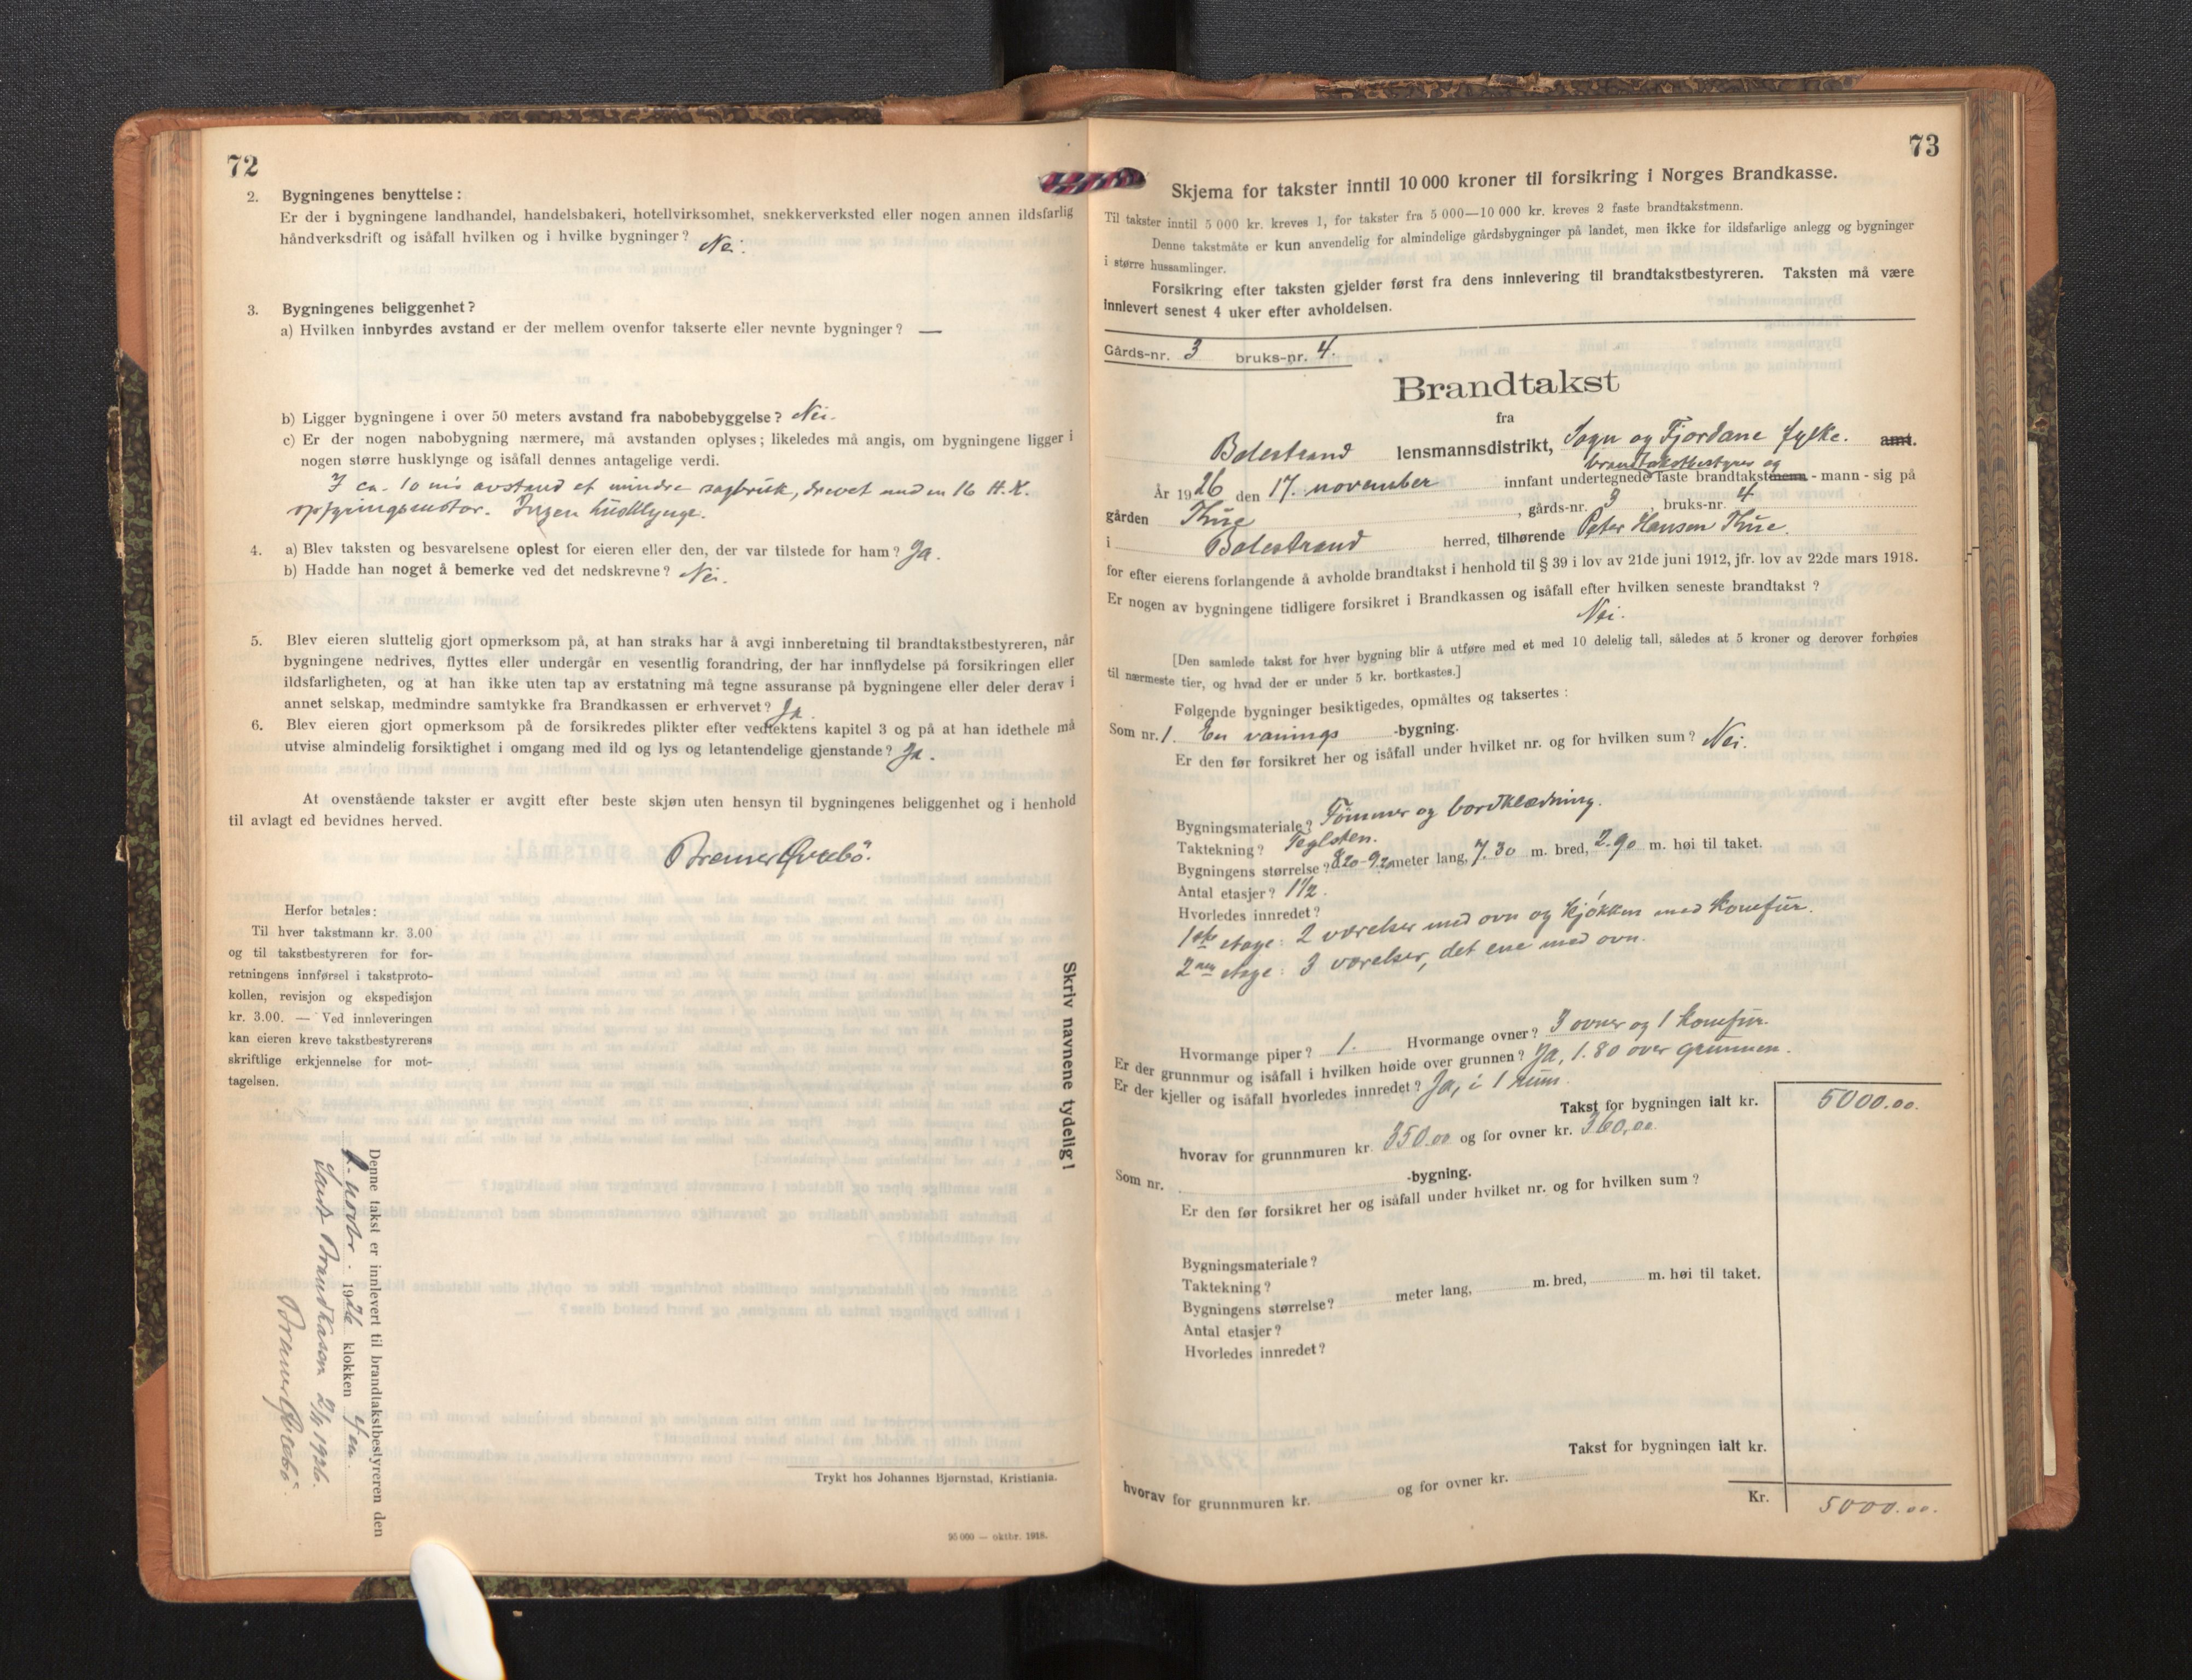 72
2. Bygningenes benyttelse:
Er der i bygningene landhandel, handelsbakeri, hotellvirksomhet, snekkerverksted eller nogen annen ildsfarlig
håndverksdrift og isåfall hvilken og i hvilke bygninger? Nei.
3. Bygningenes beliggenhet?
a) Hvilken innbyrdes avstand er der mellem ovenfor takserte eller nevnte bygninger? —
b) Ligger bygningene i over 50 meters avstand fra nabobebyggelse? Nei.
c) Er der nogen nabobygning nærmere, må avstanden oplyses; likeledes må angis, om bygningene ligger i
nogen større husklynge og isåfall dennes antagelige verdi.
I ca. 10 m's avstand et mindre sagbruk, drevet med en 16 H.K.
opfyringsmotor. Ingen husklynge.
4. a) Blev taksten og besvarelsene oplest for eieren eller den, der var tilstede for ham? Ja.
b) Hadde han noget å bemerke ved det nedskrevne? Nei.
5. Blev eieren sluttelig gjort opmerksom på, at han straks har å avgi innberetning til brandtakstbestyreren, når
bygningene nedrives, flyttes eller undergår en vesentlig forandring, der har innflydelse på forsikringen eller
ildsfarligheten, og at han ikke uten tap av erstatning må tegne assuranse på bygningene eller deler derav i
annet selskap, medmindre samtykke fra Brandkassen er erhvervet? Ja.
6. Blev eieren gjort opmerksom på de forsikredes plikter efter vedtektens kapitel 3 og på at han idethele må
utvise almindelig forsiktighet i omgang med ild og lys og letantendelige gjenstande? Ja.
At ovenstående takster er avgitt efter beste skjøn uten hensyn til bygningenes beliggenhet og i henhold
til avlagt ed bevidnes herved.
Bremer Øvrebö.
Herfor betales:
Til hver takstmann kr. 3.00
og til takstbestyreren for for-
retningens innførsel i takstproto-
kollen, revisjon og ekspedisjon
kr. 3.00. — Ved innleveringen
kan eieren kreve takstbestyrerens
skriftlige erkjennelse for mot-
tagelsen.
Skriv navnene tydelig!
Denne takst er innlevert til brandtakstbestyreren den
novbr. 1926 klokken
Sendt Brandkassen 1926.
Bremer Øvrebö.
Trykt hos Johannes Bjørnstad, Kristiania.
95 000 — oktbr. 1918.
73
Skjema for takster inntil 10 000 kroner til forsikring i Norges Brandkasse.
Til takster inntil 5 000 kr. kreves 1, for takster fra 5 000—10 000 kr. kreves 2 faste brandtakstmenn.
Denne takstmåte er kun anvendelig for almindelige gårdsbygninger på landet, men ikke for ildsfarlige anlegg og bygninger
i større hussamlinger.
Forsikring efter taksten gjelder først fra dens innlevering til brandtakstbestyreren. Taksten må være
innlevert senest 4 uker efter avholdelsen.
Gårds-nr. 3 bruks-nr. 4.
Brandtakst
fra
Balestrand lensmannsdistrikt, Sogn og Fjordane fylke. amt.
brandtakstbestyrer og
År 1926 den 17. november innfant undertegnede faste brandtakstmenn - mann - sig på
gården Thue, gårds-nr. 3 bruks-nr. 4
i Balestrand herred, tilhørende Peter Hansen Thue.
for efter eierens forlangende å avholde brandtakst i henhold til § 39 i lov av 21de juni 1912, jfr. lov av 22de mars 1918.
Er nogen av bygningene tidligere forsikret i Brandkassen og isåfall efter hvilken seneste brandtakst?
Nei.
[Den samlede takst for hver bygning blir å utføre med et med 10 delelig tall, således at 5 kroner og derover forhøies
til nærmeste tier, og hvad der er under 5 kr. bortkastes.]
Følgende bygninger besiktigedes, opmåltes og taksertes:
Som nr. 1. En vånings -bygning.
Er den før forsikret her og isåfall under hvilket nr. og for hvilken sum? Nei.
Bygningsmateriale? Tømmer og bordklædning.
Taktekning? Teglsten.
Bygningens størrelse? 8.20-9.20 meter lang, 7.30 m. bred, 2.90 m. høi til taket.
Antal etasjer? 1½.
Hvorledes innredet?
1ste etage: 2 værelser med ovn og kjøkken med komfür.
2nen etage: 3 værelser, det ene med ovn.
Hvormange piper? 1. Hvormange ovner? 3 ovner og 1 komfür.
Er der grunnmur og isåfall i hvilken høide over grunnen? Ja, 1.80 over grunnen.
Er der kjeller og isåfall hvorledes innredet? Ja, i 1 rum.
Takst for bygningen ialt kr. 5000.00.
hvorav for grunnmuren kr. 350.00 og for ovner kr. 360,00.
Som nr. -bygning.
Er den før forsikret her og isåfall under hvilket nr. og for hvilken sum?
Bygningsmateriale?
Taktekning?
Bygningens størrelse? meter lang, m. bred, m. høi til taket.
Antal etasjer?
Hvorledes innredet?
Takst for bygningen ialt kr.
hvorav for grunnmuren kr. og for ovner kr.
Kr. 5000.00.